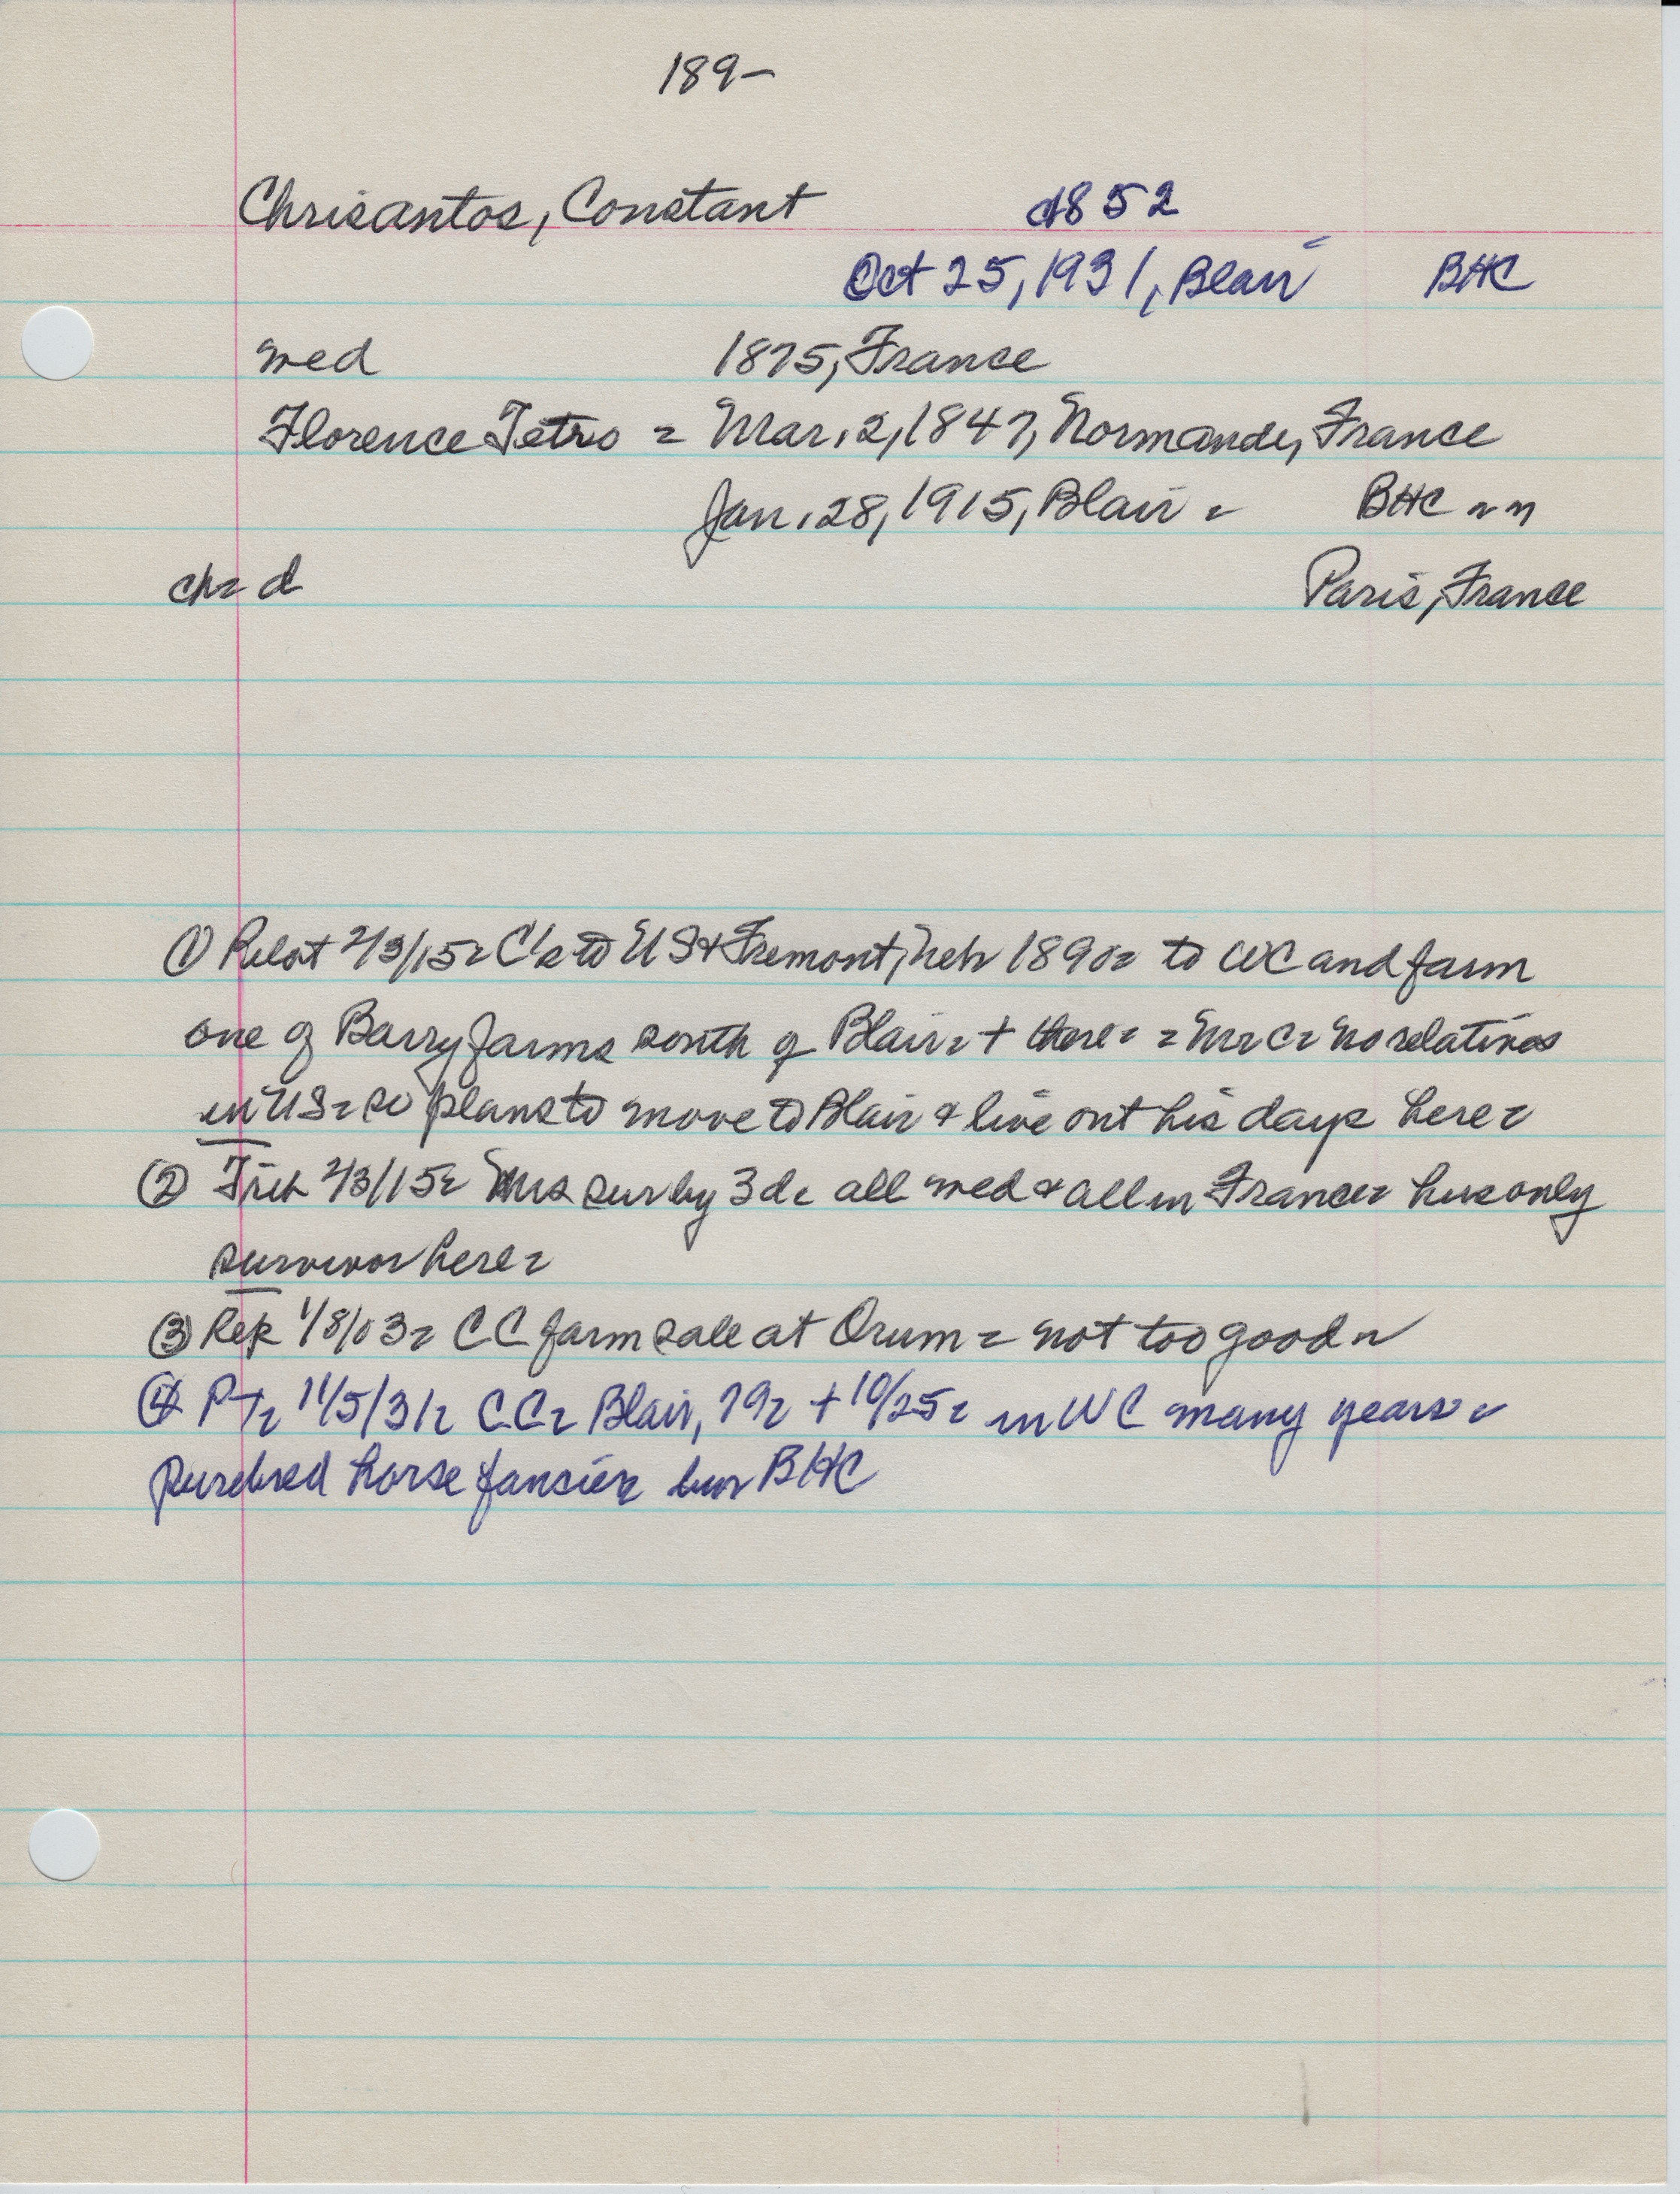 189-
Chrisantos, Constant c1852
Oct 25, 1931, Blair BHC
med 1875, France
Florence Tetro = Mar. 2, 1847, Normandy, France
Jan. 28, 1915, Blair = BHC
ch= d Paris, France
① Pilot 2/3/15= C's to US & Fremont, Neb 1890= to WC and farm
one of Barry farms south of Blair= + there= = Mr C= no relatives
in US= so plans to move to Blair & live out his days here=
② Trib 2/3/15= Mrs sur by 3 d= all med & all in France= hus only
survivor here=
③ Rep 1/8/03= CC farm sale at Orum = not too good
④ PT= 11/5/31= CC= Blair, 79= + 10/25= in WC many years=
purebred horse fancier= bur BHC